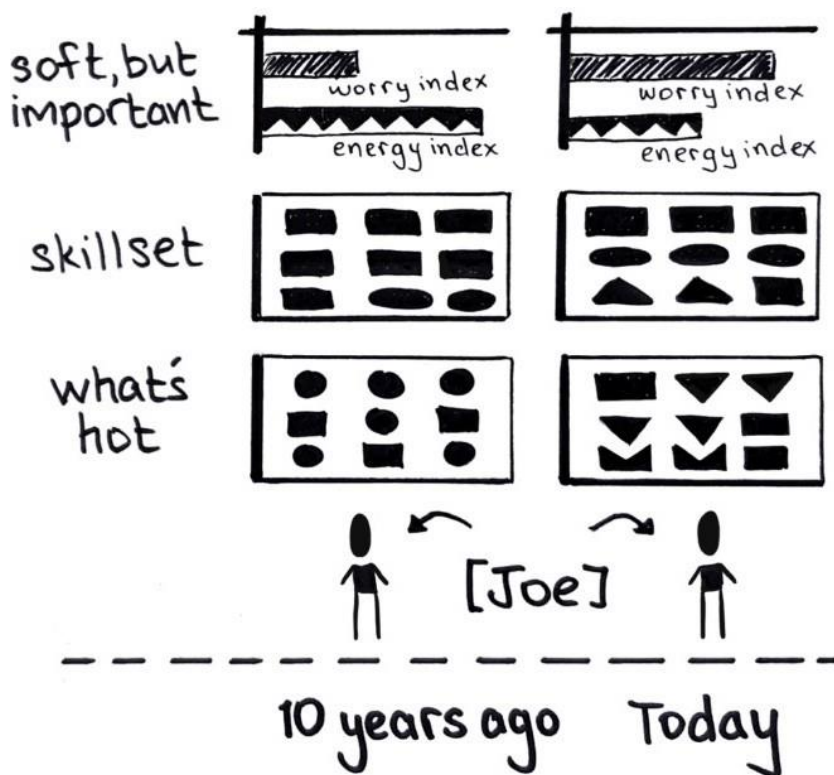 soft, but
important
worry index
energy index
worry index
energy index
skillset
what's
hot
[Joe]
10 years ago
Today